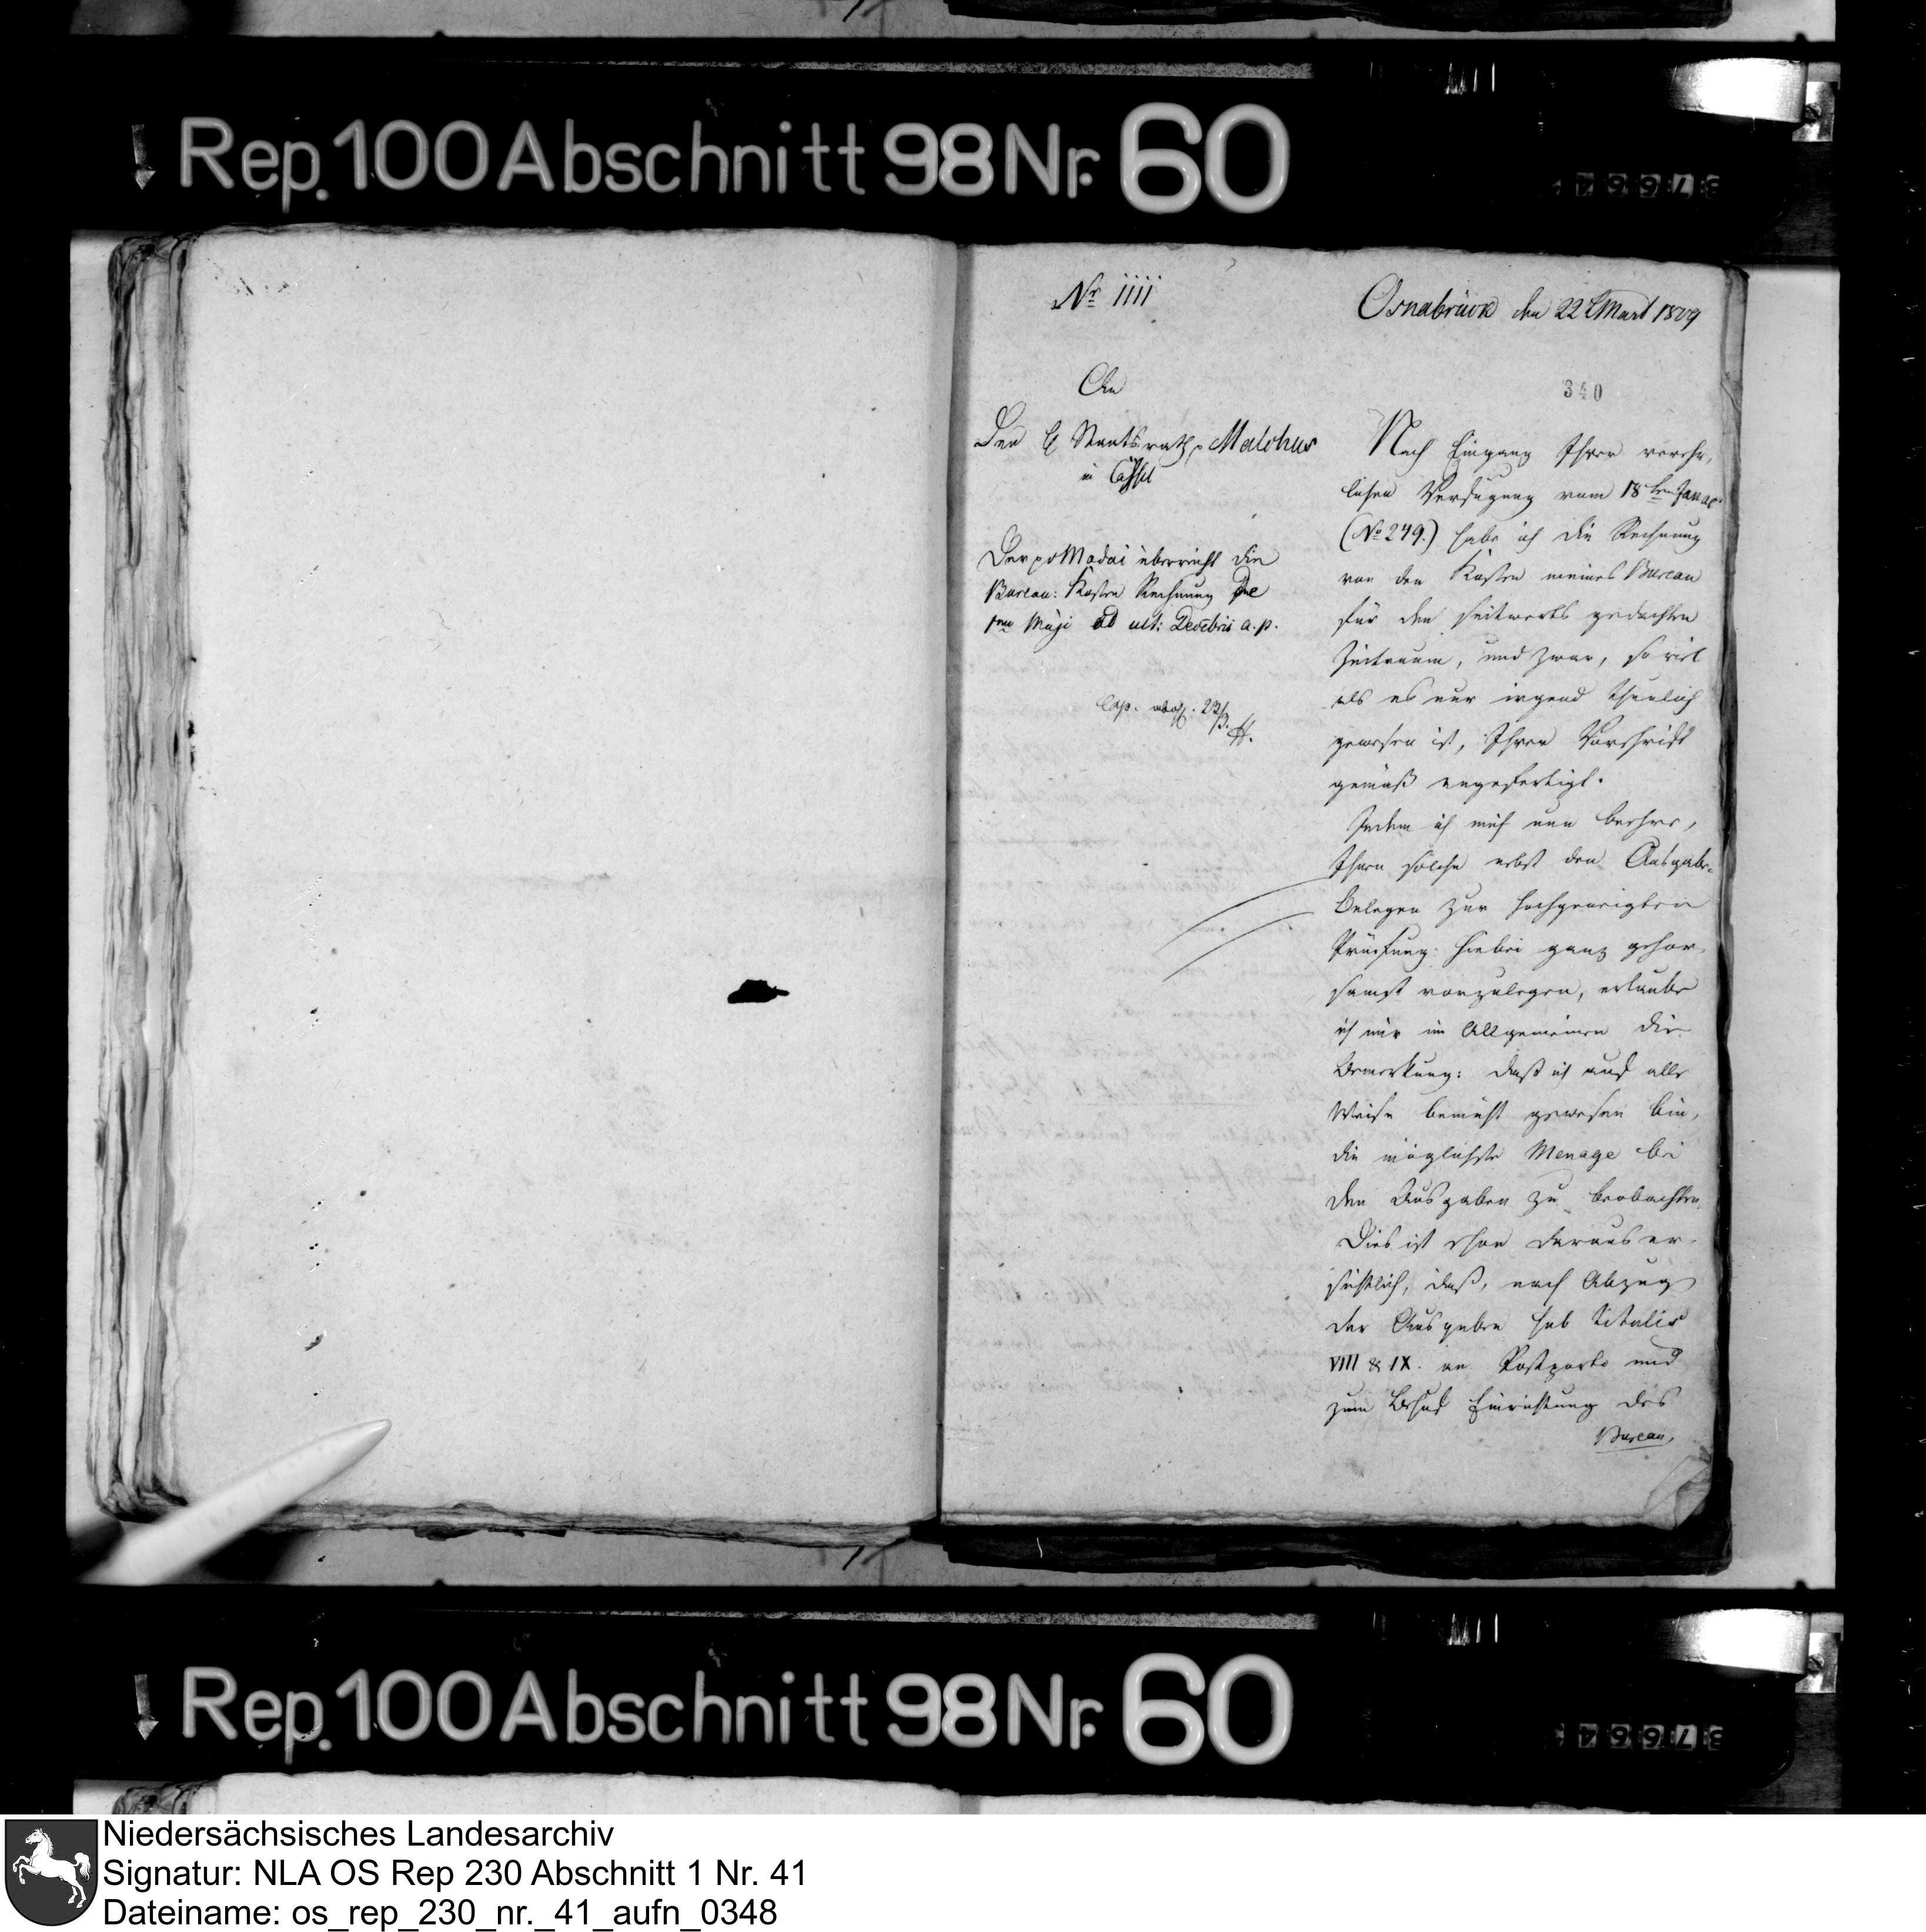 Rep. 100 Abschnitt 98 Nr. 60
37664
Nr. 1111
Osnabrück den 22 Mart 1809
340
An
Den H Staatsrath p Malchus
in Cassel
Der p v Madai überreicht die
Bureau: Kosten Rechnung de
1mo Maji ad ult: Decebris a. p.
abgg. 23/3.
Nach Eingang Ihrer verehr-
lichen Verfügung vom 18ten Januar
(No 249.) habe ich die Rechnung
von den Kosten meines Bureau
für den seitwerts gedachten
Zeitraum, und zwar, so viel
als es nur irgend thunlich
gewesen ist, Ihrer Vorschrift
gemäß angefertigt.
Indem ich mich nun beehre,
Ihnen solche nebst den Ausgabe-
Belegen zur hochgeneigten
Prüfung hiebei ganz gehor-
samst vorzulegen, erlaube
ich mir im Allgemeinen die
Bemerkung: daß ich auf alle
Weise bemüht gewesen bin,
die möglichste Menage bei
den Ausgaben zu beobachten.
Dies ist schon daraus er-
sichtlich, daß, nach Abzug
der Ausgaben sub titulis
VIII & IX. an Postporto und
zum Behuf Einrichtung des
Bureau,
Rep. 100 Abschnitt 98 Nr. 60
37664
Niedersächsisches Landesarchiv
Signatur: NLA OS Rep 230 Abschnitt 1 Nr. 41
Dateiname: os_rep_230_nr._41_aufn_0348